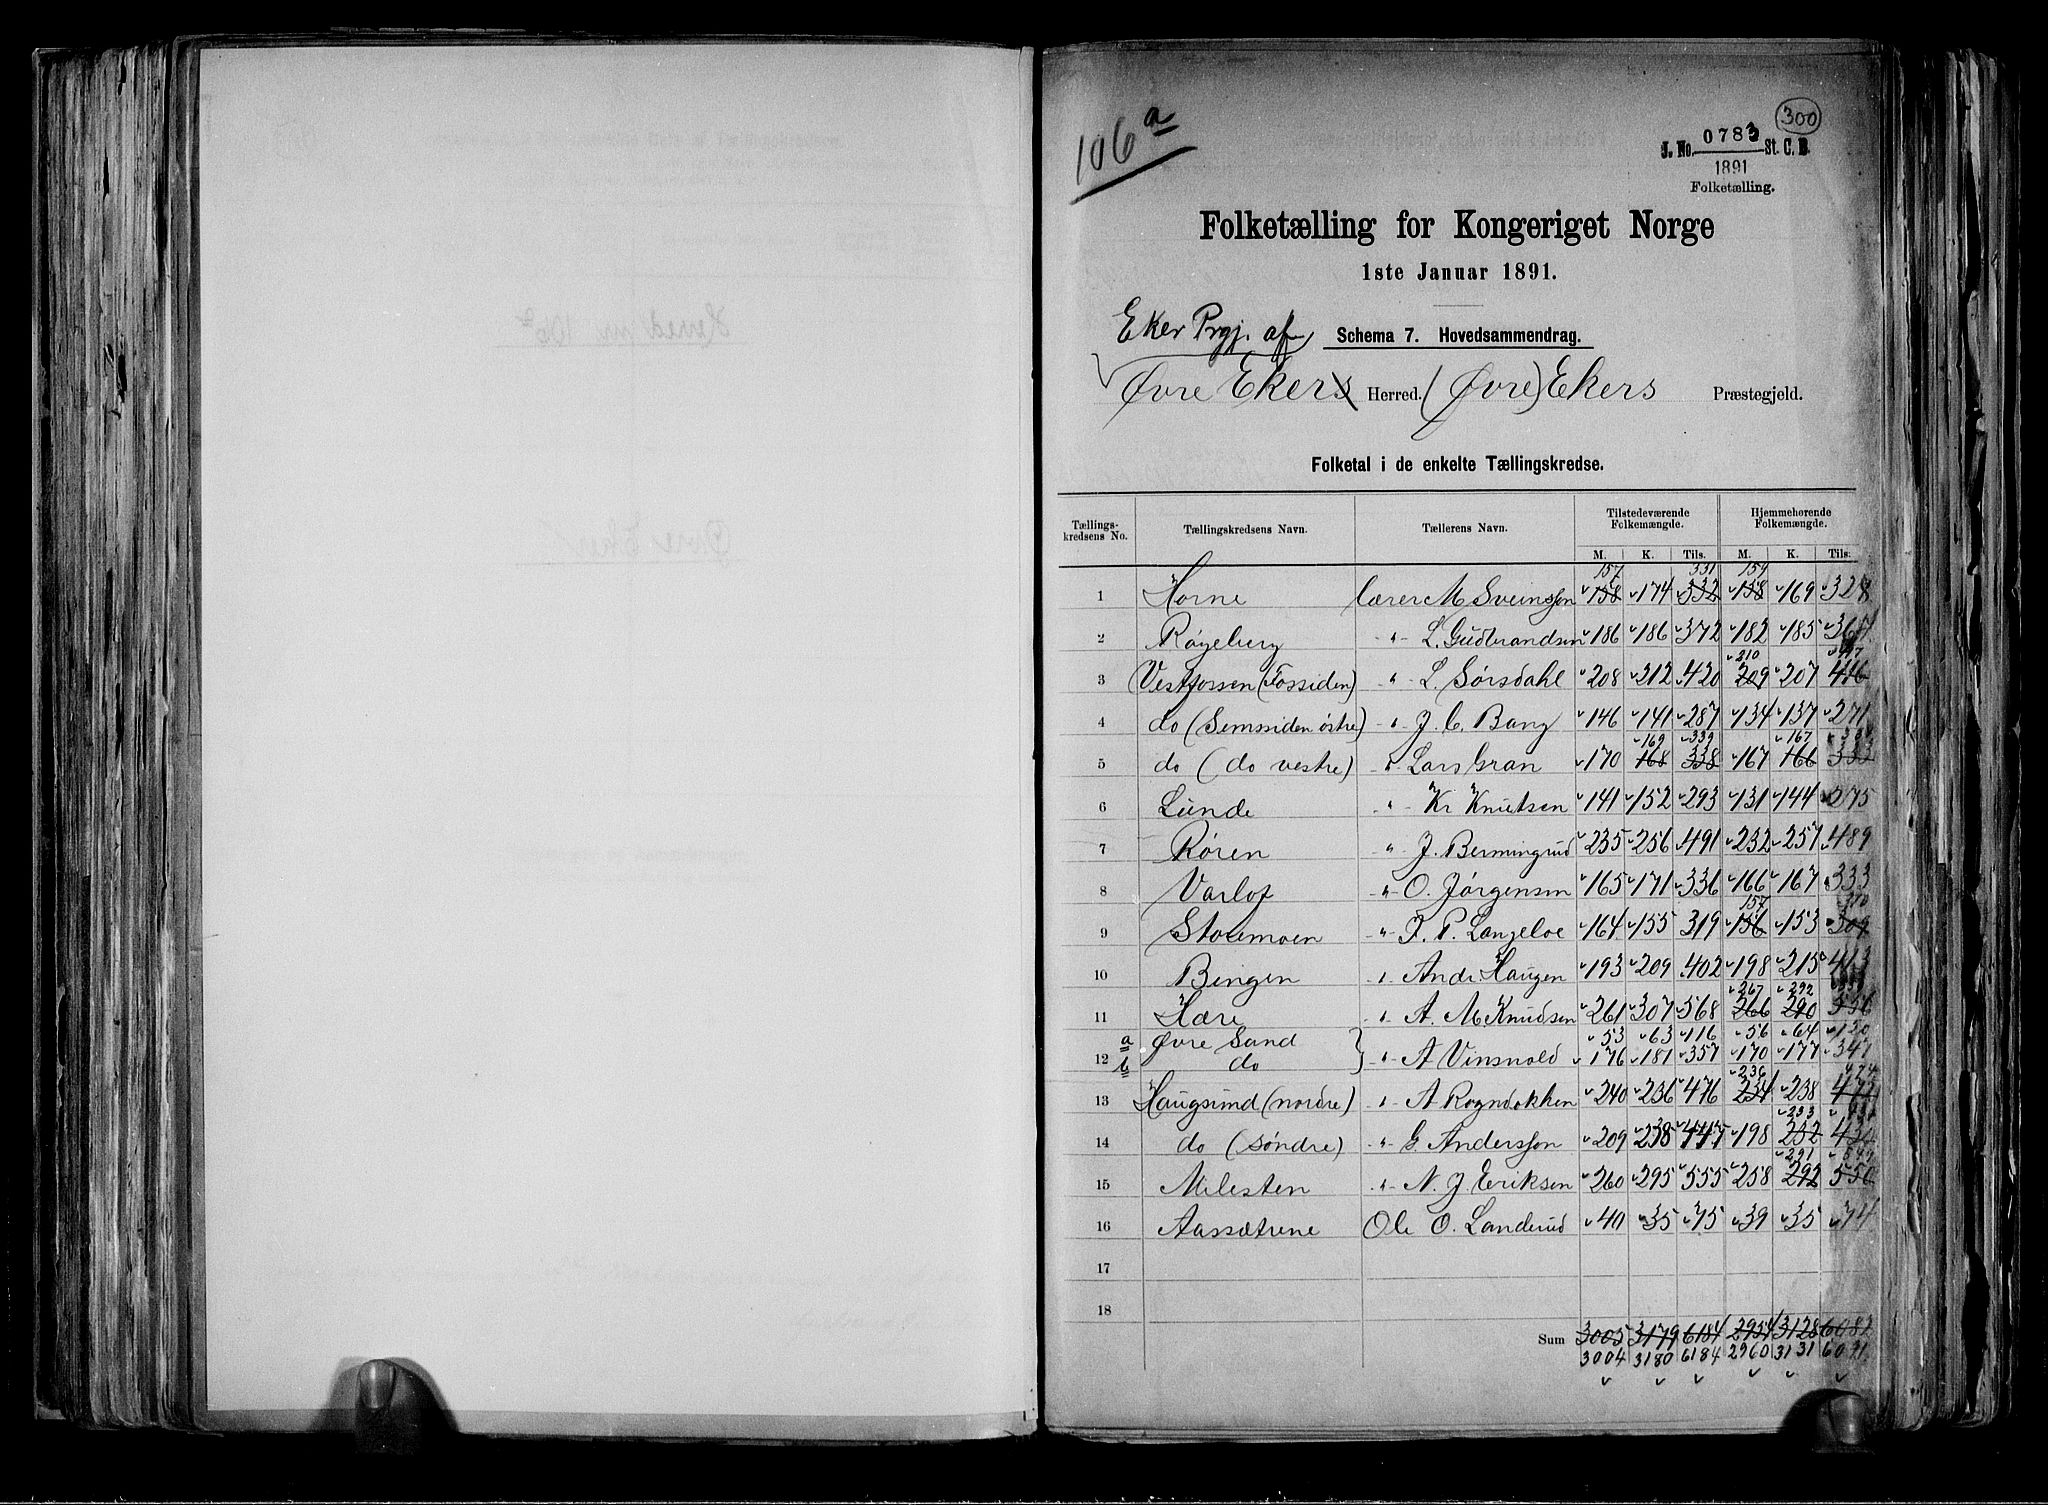 300
106 a
J. No. 0783 St. C. B.
1891
Folketælling.
Folketælling for Kongeriget Norge
1ste Januar 1891.
Eker Prgj. af
Schema 7. Hovedsammendrag.
Øvre Ekers Herred. (Øvre) Ekers Præstegjeld.
Folketal i de enkelte Tællingskredse.
Tællings-kredsens No. Tællingskredsens Navn. Tællerens Navn. Tilstedeværende Folkemængde. Hjemmehørende Folkemængde.
M. K. Tils. M. K. Tils.
157 331 159
1 Horne Lærer M Sveinssen 158 174 332 158 169 328
2 Røgeberg -"- L. Gudbrandsen 186 186 372 182 185 367
210 417
3 Vestfossen (Fossiden) " L. Sørsdahl 208 212 420 209 207 416
4 do (Semssiden østre) " J. C. Bang 146 141 287 134 137 271
169 339 167 334
5 do (do vestre) " Lars Gran 170 168 338 167 166 333
6 Lunde " Kr Knutsen 141 152 293 131 144 275
7 Røren " J. Bermingrud 235 256 491 232 257 489
8 Varlof " O. Jørgensen 165 171 336 166 167 333
157 310
9 Storemoen " J. P. Langeloe 164 155 319 156 153 309
10 Bingen " Andr Haugen 193 209 402 198 215 413
267 292
11 Hære " A. M. Knudsen 261 307 568 266 290 556
a Øvre Sand 53 63 116 56 64 120
12 b do " A Vinsnold 176 181 357 170 177 347
236 474
13 Haugsund (nordre) " A Rogndokken 240 236 476 234 238 472
233 431
14 do (søndre) " G. Anderssen 209 238 447 198 232 430
291 549
15 Milesten " N. J. Eriksen 260 295 555 258 292 550
16 Aassætrene Ole O. Landerud 40 35 75 39 35 74
17
18
Sum 3005 3179 6184 2954 3128 6082
3004 3180 6184 2960 3131 6091